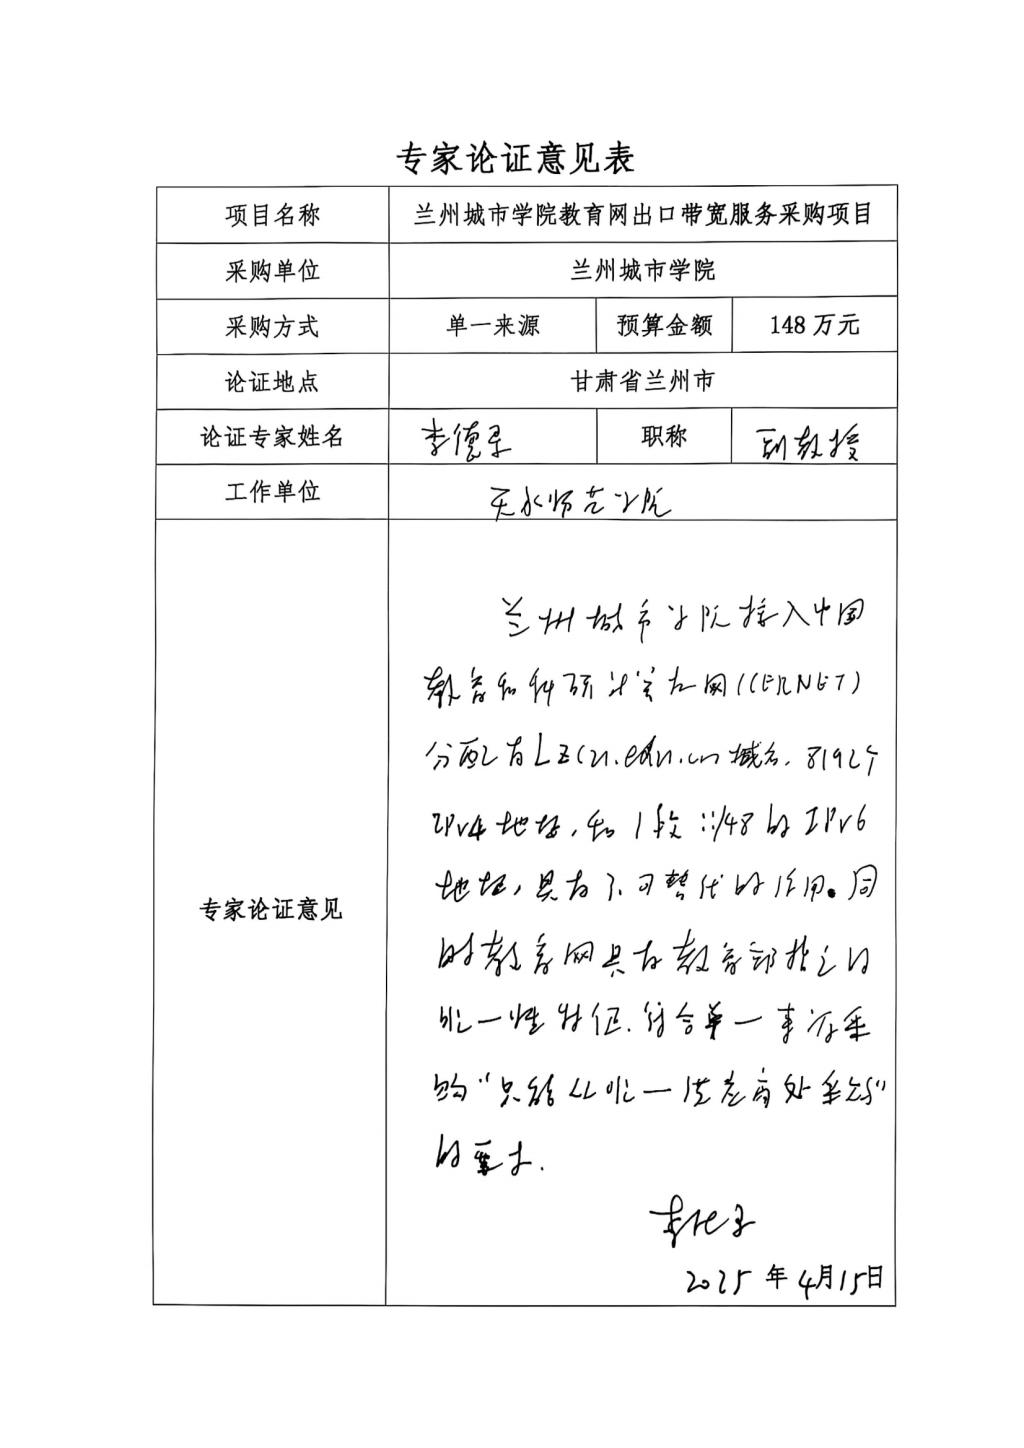 专家论证意见表
项目名称 兰州城市学院教育网出口带宽服务采购项目
采购单位 兰州城市学院
采购方式 单一来源 预算金额 148万元
论证地点 甘肃省兰州市
论证专家姓名 李德 职称 副教授
工作单位 天水师范学院
专家论证意见
兰州城市学院接入中国
教育和科研计算机网(CERNET)
分配有Lzcu.edu.cn域名,8192个
IPv4地址,和1段::/48的IPv6
地址,具有不可替代的作用。同
时教育网具有教育部指定的
唯一性特征.符合单一来源采
购"只能从唯一供应商处采购"
的要求.
李
2025年4月15日